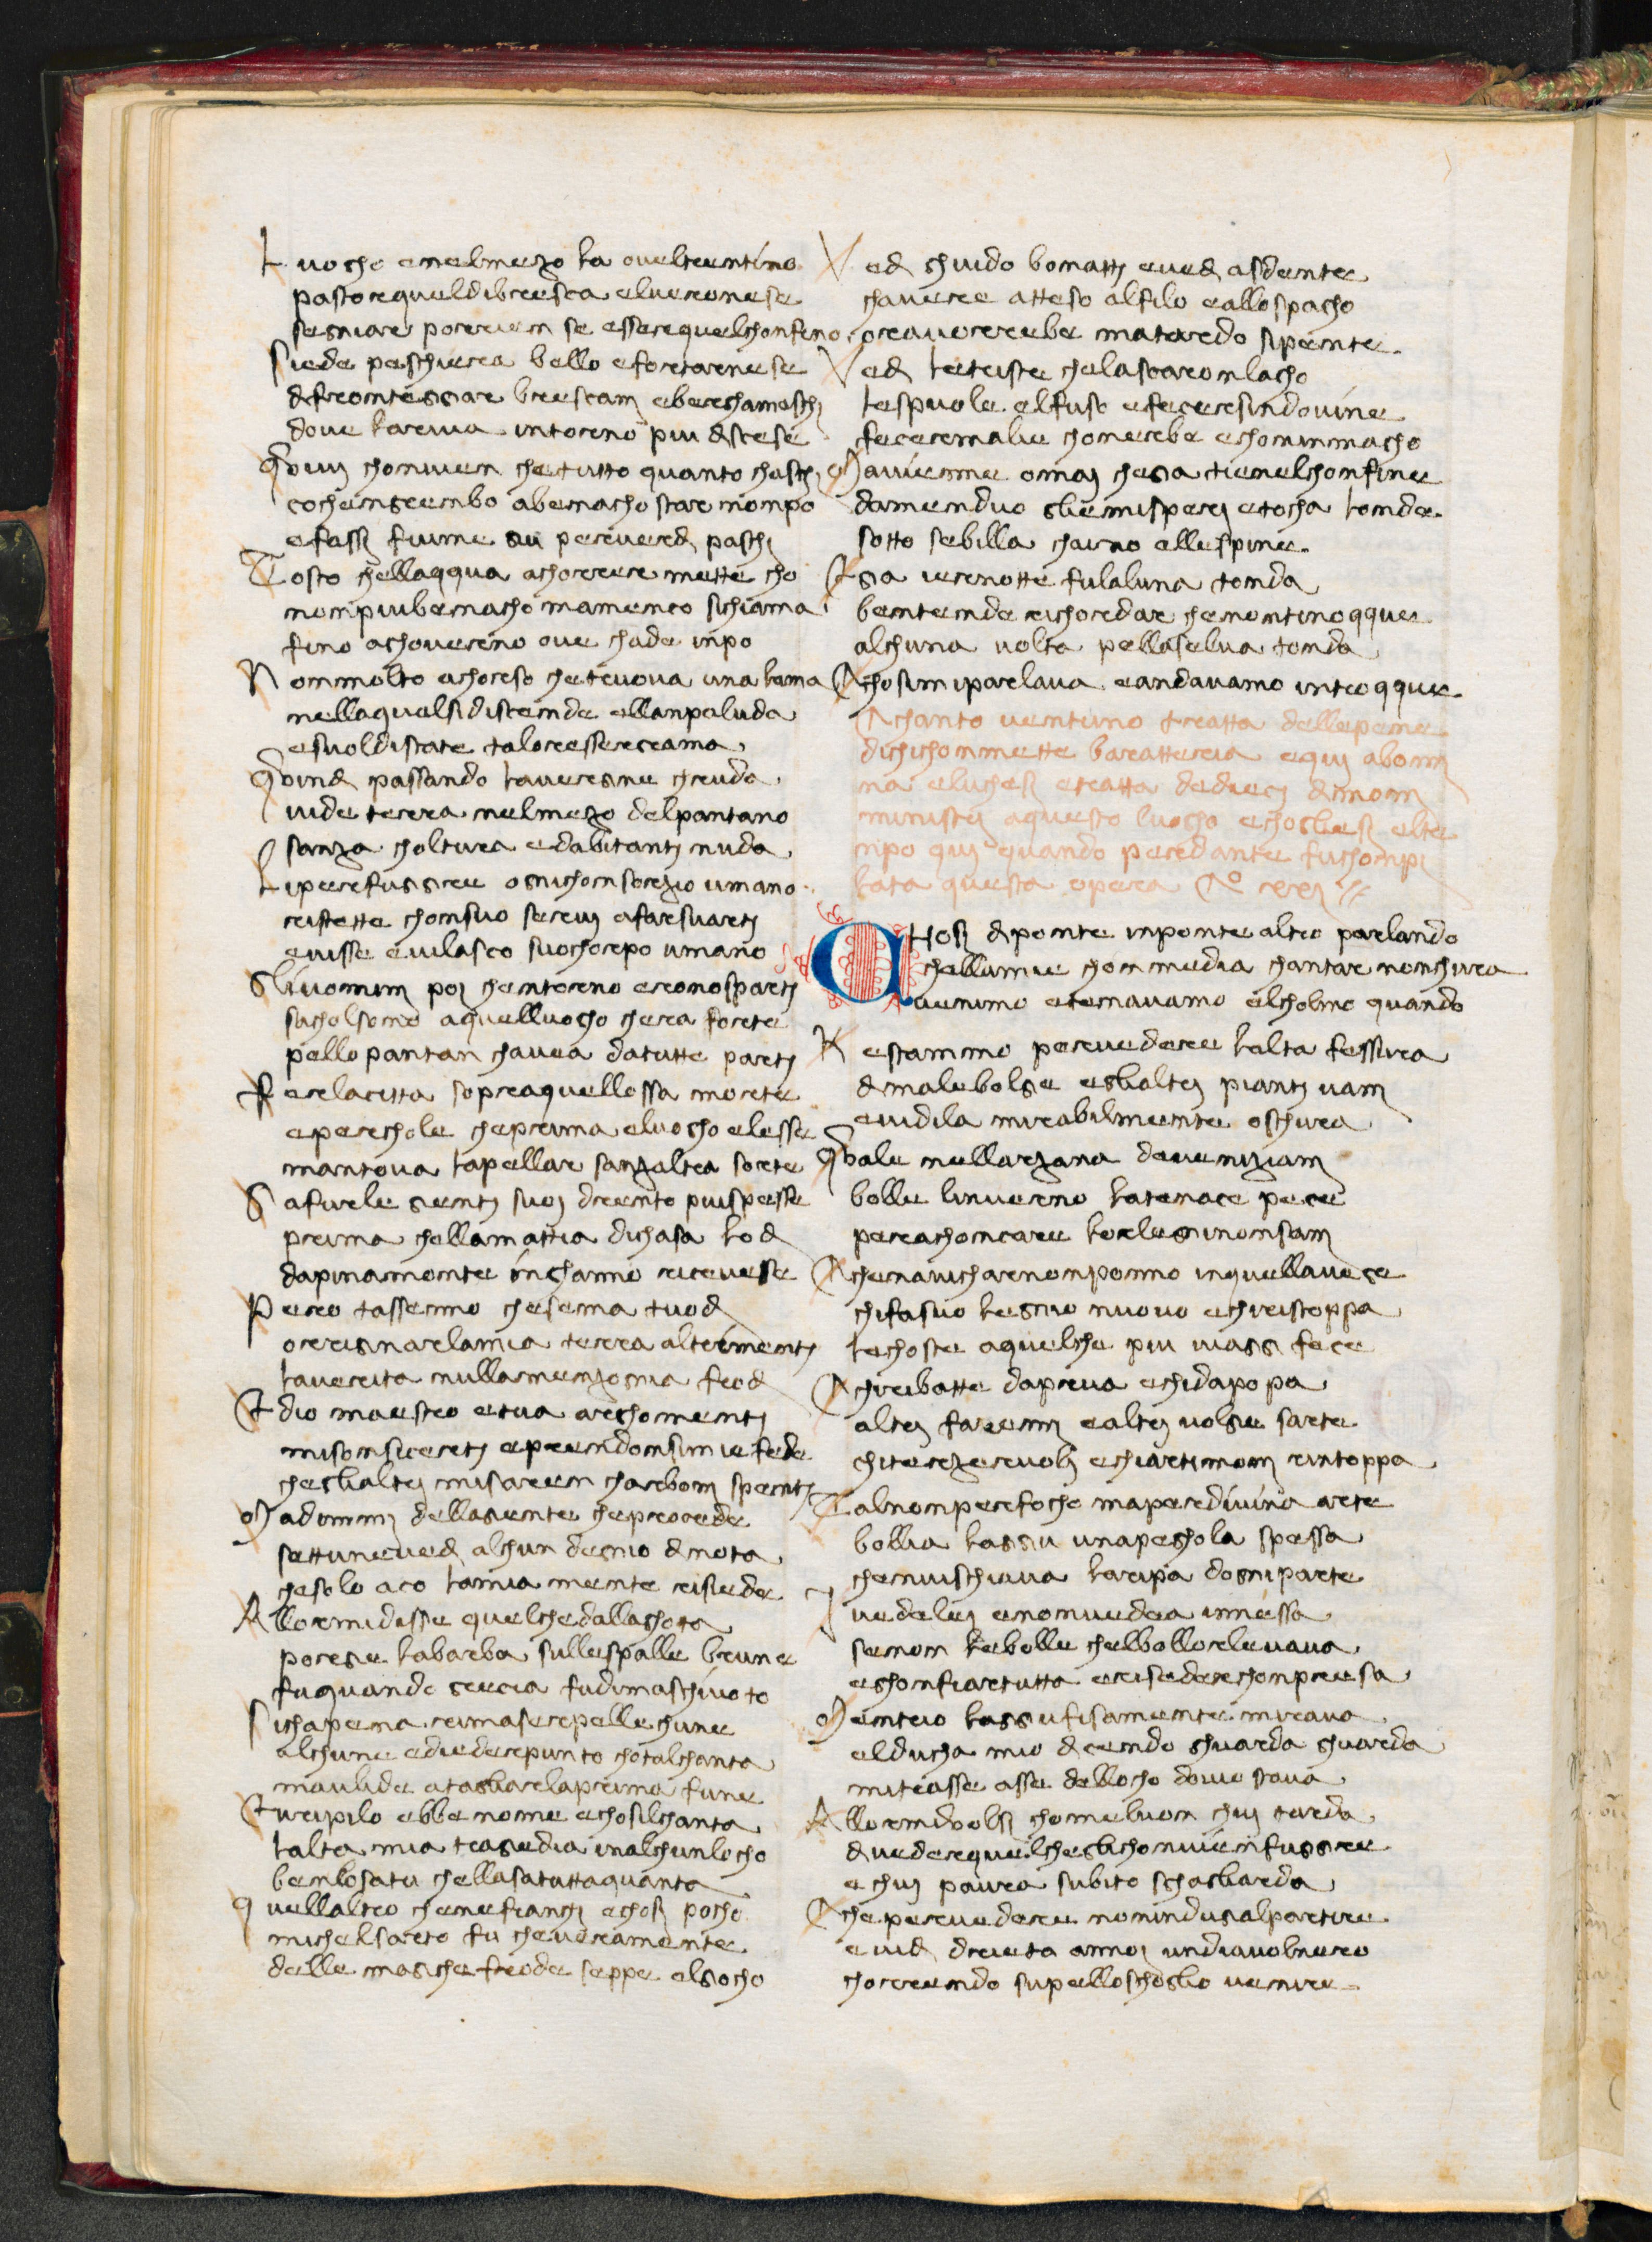 Luocho enelmezo la oveltrentino
pastorequeldibrescia elveronese
segniare porrien se esserequelchonfino
Siede peschiera bello efortarnese
dfrontegiar bresciani eberghamaschi
dove lariva intorno piu discese
Qvivi chonvien chetutto quanto chaschi
cocheingrenbo abenacho star nonpo
efassi fiume gu perverdi paschi
Tosto chellacqua achorrere mette cho
nonpiubenacho mamenco sichiama
fino aghoverno ove chade inpo
Nommolto achorso chetruova una lama
nellaqualsi distende ellanpaluda
esuoldistate taloressergrama
Qvindi passando lavergine chruda
vide terra nelmezo delpantano
sanza choltura edabitanti nuda
Liperfuggire ognichonsorzio umano
ristette chonsuo servi afarsuarti
evisse evilascio suochorpo umano
Gliuomini poi chentorno eronosparti
sacholsono aquelluocho chera forte
pello pantan chavea datutte parti
Ferlacitta sopraquellossa morte
eperchole cheprima eluocho elesse
mantova lapellar sanzaltra sorte
Gafurle genti suoi drento piuspesse
prima chellamattia dichasa lodi
dapinamonte inghanno ricevesse
Pero tassenno chesemai tuodi
origginarlamia terra altrimenti
laverita nullamenzognia frodi
Edio maestro etua arghomenti
misonsicerti eprendonsimie fede
cheglialtri misarien charboni spenti
Madimmi dellagente cheprocede
settunevedi alchun degnio dinota
chesolo acio lamia mente risiede
Allormidisse quelchedallaghota
porgie labarba sullespalle brune
fuquando grecia fudimaschivoto
Sichapena rimaserpellechune
alchune ediedeepunto chotalchanta
inaulide ataglarlaprima fune
Euripilo ebbenome echosilchanta
lalta mia tragedia inalchunlocho
benlosatu chellasatuttaquanta
Quellaltro chenefianchi echosi pocho
michelscotto fu cheveramente
delle magiche frode seppe elgiocho
Vedi ghuido bonatti evedi asdente
chavere atteso alfilo eallospacho
oravorrebe matardo sipente
Vedi letriste chelasciaronlacho
laspuola elfuso efecersindovine
fecermalie chonerbe echonimmacho
Mavienne omai chegia tienelchonfine
damenduo gliemisperi etocha londa
sotto sebilla chaino ellespine
Egia iernotte fulaluna tonda
bentende richordar chenontinocque
alchuna volta pellaselva fonda
Achosimiparlava eandavamo introcque
Achanto ventuno tratta dellepene
dichichommette baratteria equi abomi
na eluchesi etratta dedieci dimoni
ministri aquesto luocho echogliesi elte
npo qui quando perdante fuchompi
lata questa opera
Chosi dponte inponte altro parlando
chellamie chommedia chantar nonchura
venimo etenavamo elcholmo quando
Restammo pervedere laltra fessura
dmalebolge eglialtri pianti vani
evidila mirabilmente oschura
Qvale nellarzana deveniziani
bolle linverno latenace pece
perachonciare lorlegninonsani
Achenavicharnonponno inquellavece
chifasuo legnio nuovo echiristoppa
lechoste aquelche piu viaggi fece
Achiribatte daprua echidapoppa
altri faremi ealtri volge sarte
chiterzeruoli echiartimoni rintoppa
Talnonperfocho maperdivina arte
bollia laggiu unapeghola spessa
chenvischiava laripa dogniparte
Ivedelei enonvedea inessa
senon lebolle chelbollorlevava
eghonfiartutta erisedechonpresa
Mentrio laggiufisamente mirava
elducha mio dicendo ghuarda ghuarda
mitrasse asse dellocho dovio stava
Allormivolsi chomeluon chui tarda
divederequelcheglichonvienfuggire
echui paura subito schagliarda
Chepervedere nonindugialpartire
evidi drieta annoi undiavolnero
chorrendo supelloschoglio venire